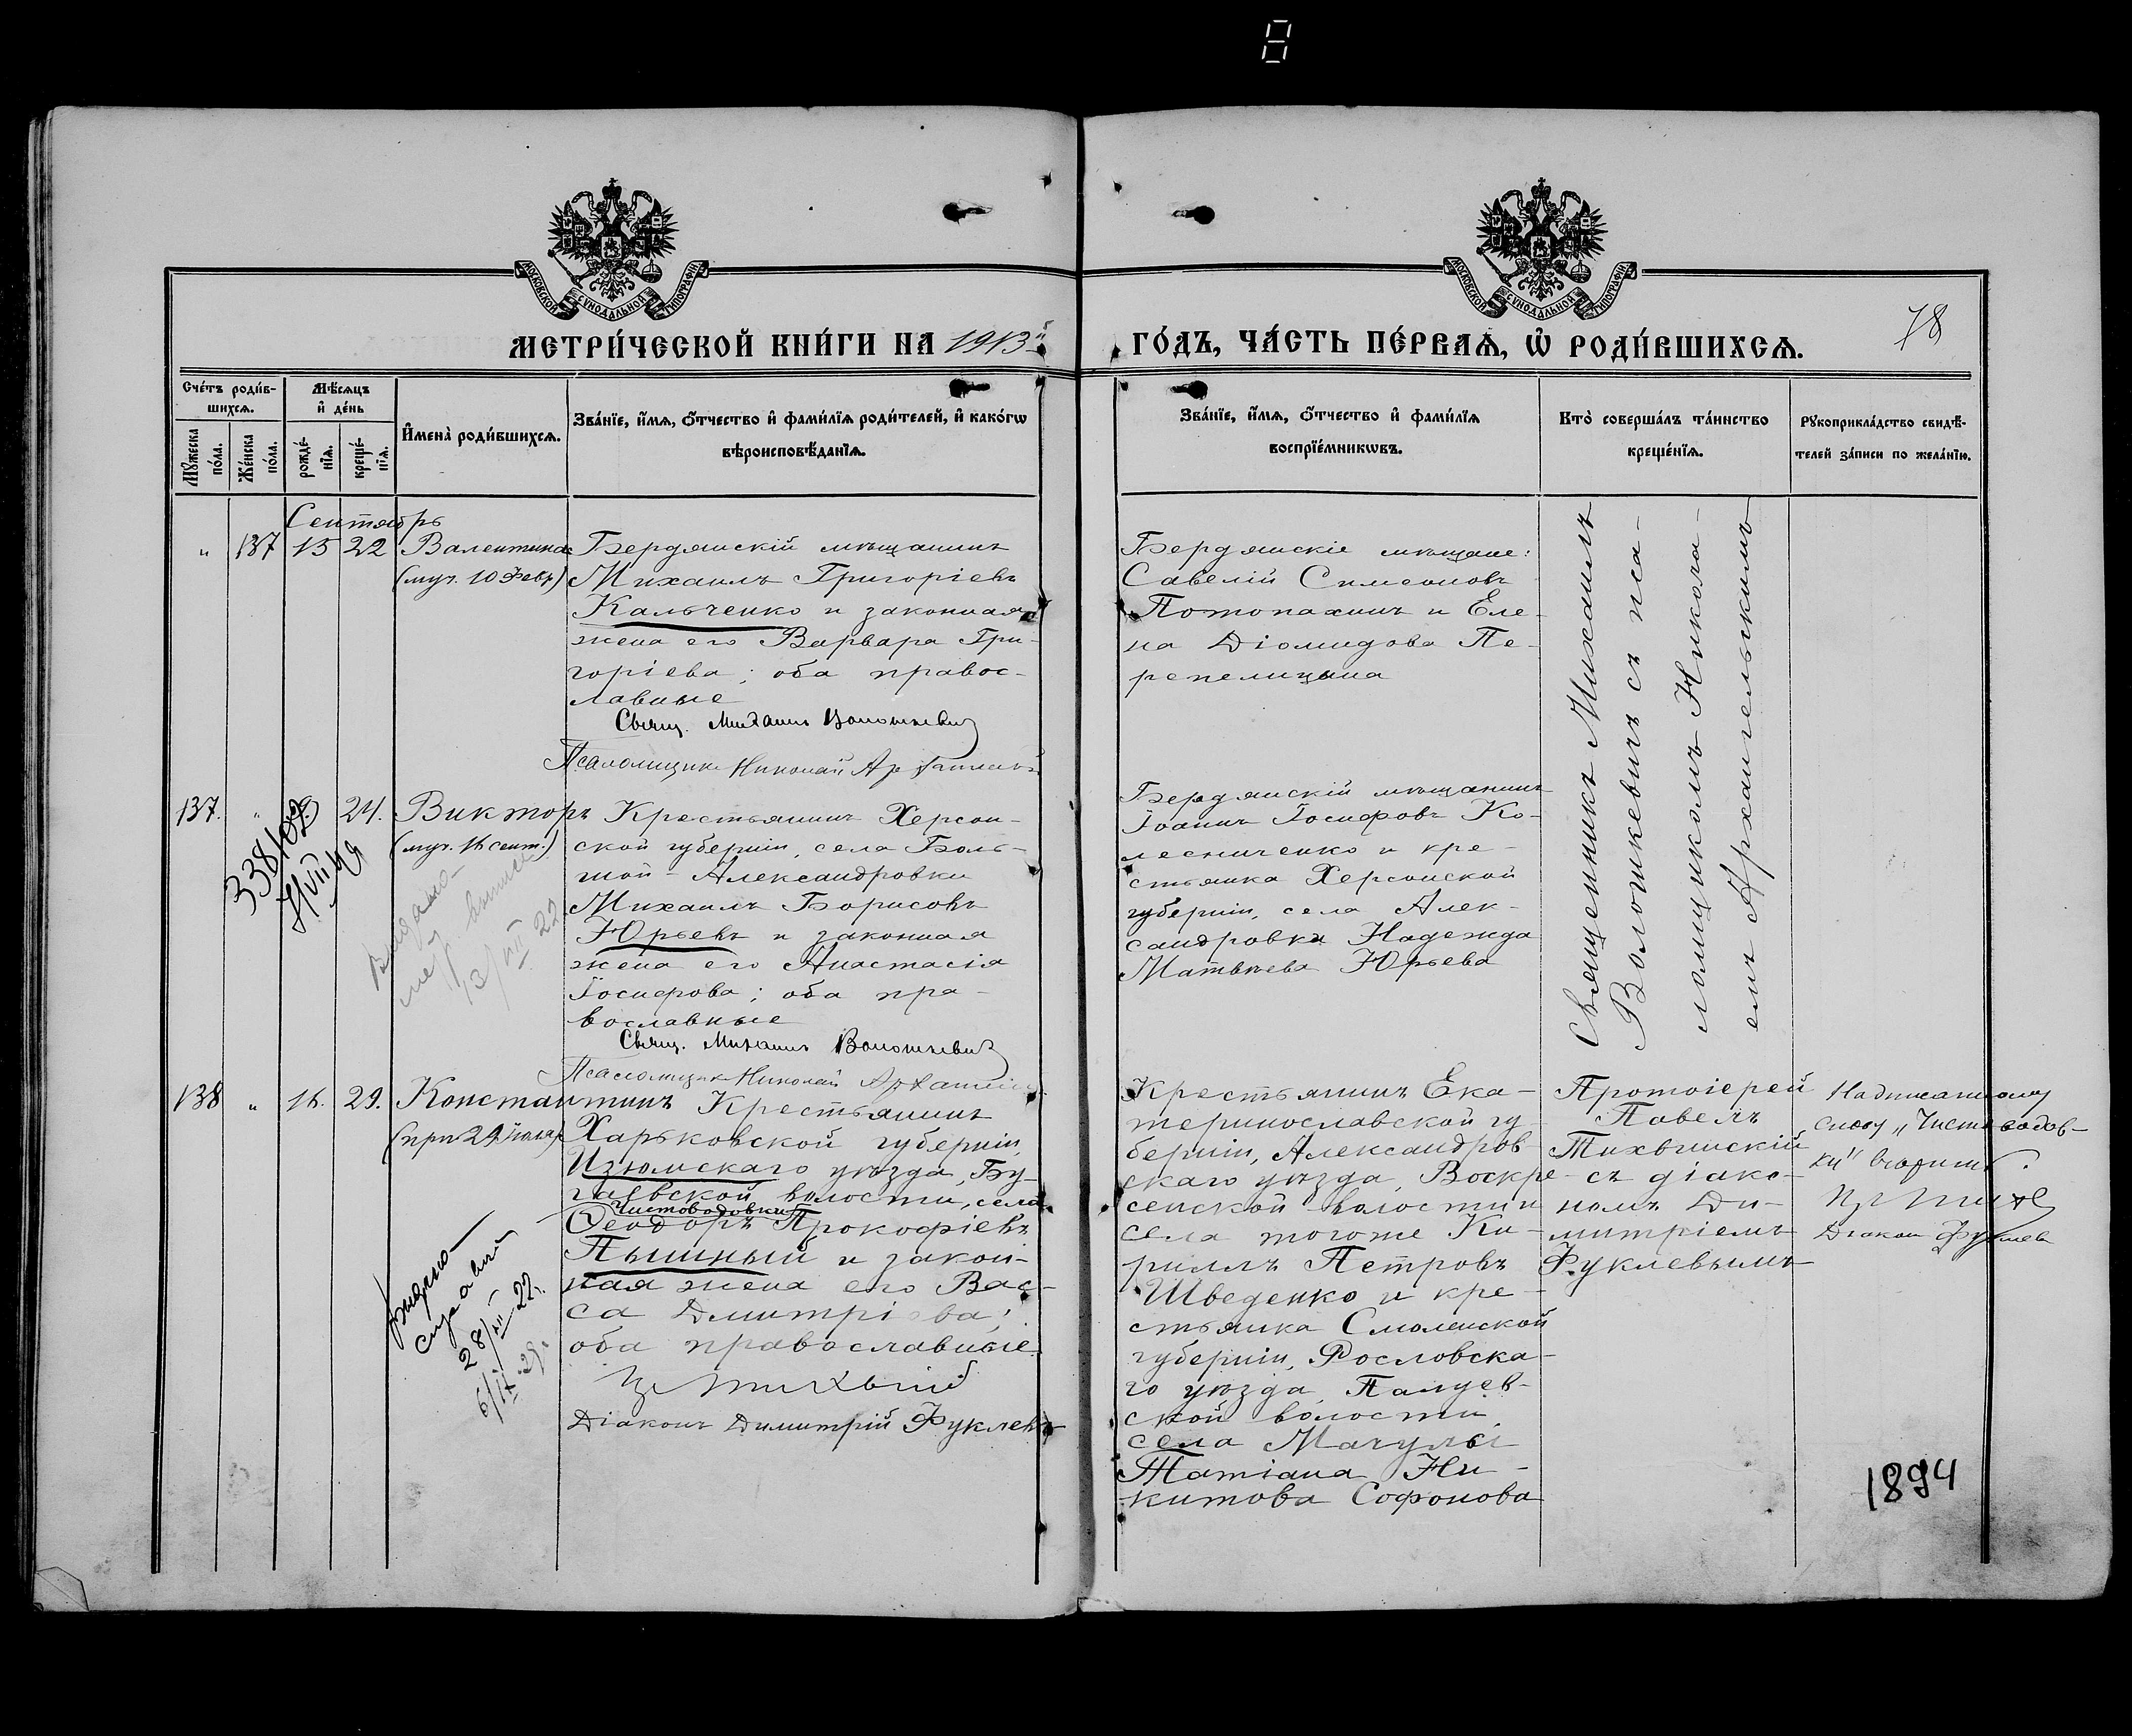 МОСКОВСКОЙ СѴНОДАЛЬНОЙ ТИПОГРАФІИ
МОСКОВСКОЙ СѴНОДАЛЬНОЙ ТИПОГРАФІИ
МЕТРИ́ЧЕСКОЙ КНИ́ГИ НА 1913й
ГО́ДЪ, ЧА́СТЬ ПЕ́РВАѦ, Ѡ҆ РОДИ́ВШИХСѦ.
78
Сче́тъ роди́в-
шихсѧ.
Мѣ́сѧцъ
и҆ де́нь
Мꙋ́жеска
по́ла.
Же́нска
по́ла.
рожде́-
нїѧ.
креще́-
нїѧ.
И҆мена̀ роди́вшихсѧ.
Зва́нїе, и҆́мѧ, ѻ҆́тчество и҆ фами́лїѧ роди́телей, и҆ како́гѡ
вѣроисповѣ́данїѧ.
Зва́нїе, и҆́мѧ, ѻ҆́тчество и҆ фами́лїѧ
воспрїе́мникѡвъ.
Кто̀ соверша́лъ та́инство
креще́нїѧ.
Рꙋкоприкла́дство свидѣ́-
телей за́писи по жела́нїю.
Сентябрь
" 137 15 22 Валентина
(муч. 10 Февр)
Бердянскій мѣщанинъ
Михаилъ Григоріевъ
Кальченко и законная
жена его Варвара Гри-
горіева; оба правос-
лавные
Свящ. Михаилъ Волошкевичъ
Псаломщикъ Николай
Бердянскіе мѣщане:
Савелій Симеоновъ
Потопахинъ и Еле-
на Діомидова Пе-
репелицына
Священникъ Михаилъ
Волошкевичъ съ пса-
ломщикомъ Никола-
емъ Архангельскимъ
137. " 24. Викторъ
(муч. 16 сент.)
338/02
Крестьянинъ Херсон-
ской губерніи, села Боль-
шой-Александровки
Михаилъ Борисовъ
Юрьевъ и законная
жена его Анастасія
Іосифова; оба пра-
вославные
Свящ. Михаилъ Волошкевичъ
Псаломщикъ Николай
Бердянскій мѣщанинъ
Іоаннъ Іосифовъ Ко-
лесниченко и кре-
стьянка Херсонской
губерніи, села Алек-
сандровка Надежда
Матвѣева Юрьева
13/VII 22
138 " 16. 29. Константинъ
(прп. 29 іюля)
Крестьянинъ
Харьковской губерніи,
Изюмскаго уѣзда, Бу-
гаевской волости, села
Чистоводовки
Ѳеодоръ Прокофіевъ
Пышный и закон-
ная жена его Вас-
са Дмитріева;
оба православные
Діаконъ Димитрій Фуклевъ
28/VII 22.
Крестьянинъ Ека-
теринославской гу
берніи, Александров
скаго уѣзда, Воскре-
сенской волости и
села тогоже Ки-
риллъ Петровъ
Шведенко и кре-
стьянка Смоленской
губерніи, Рословска-
го уѣзда,
ской волости,
села Мачулы
Татіана Ни-
китова Софонова
Протоіерей
Павелъ
Тихвинскій
съ діако-
номъ Ди-
митріемъ
Фуклевымъ
Надписанному
слову „Чистоводов-
ки" вѣрить.
Діаконъ Фуклевъ
1894